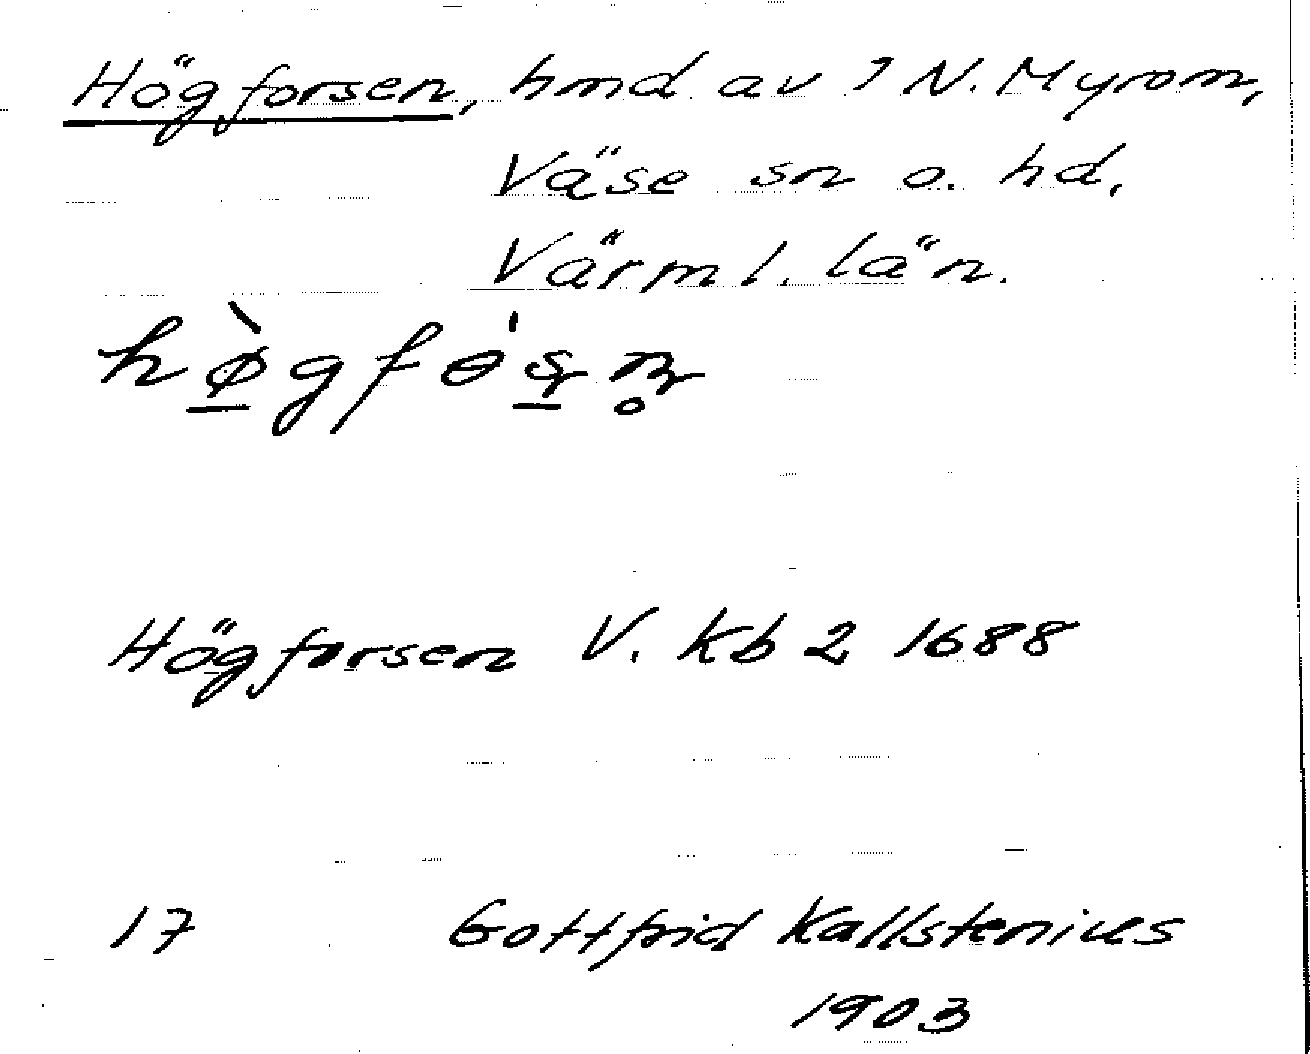 Högforsen, hmd av 7 N. Myrom,
Väse sn o. hd,
Värml. län.
hø̱̀gfɵ́s̱n̥
Högforsen V. Kb 2 1688
17 Gottfrid Kallstenius
1903